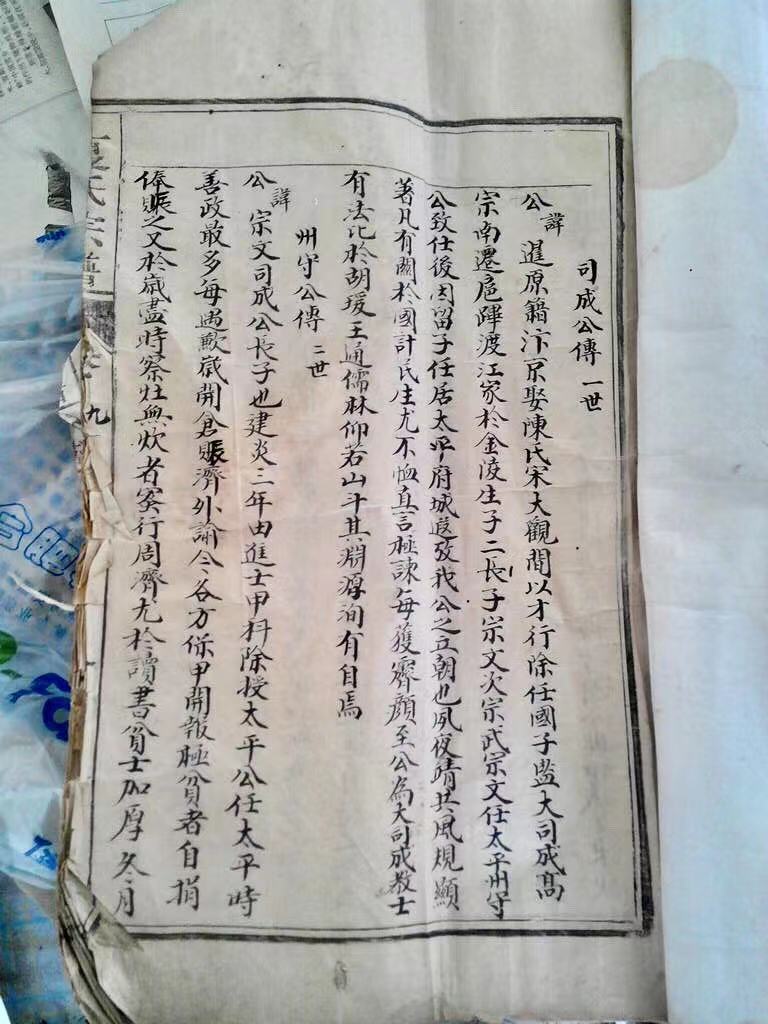 司成公傳 一世
公諱暹原籍汴京娶陳氏宋大觀間以才行除任國子監大司成高
宗南遷扈蹕渡江家於金陵生子二長子宗文次宗武宗文任太平州守
公致仕後因留子任居太平府城遐攷我公之立朝也夙夜靖共風規顯
著凡有關於國計民生尤不恤直言極諫每獲霽顏至公為大司成教士
有法比於胡瑗王通儒林仰若山斗其淵源洵有自焉
州守公傳 二世
公諱宗文司成公長子也建炎三年由進士甲科除授太平公任太平時
善政最多每遇歉歲開倉賑濟外諭令各方保甲開報極貧者自捐
俸賑之又於歲盡時察灶無炊者密行周濟尤於讀書貧士加厚冬月
氏宗譜
九
合肥